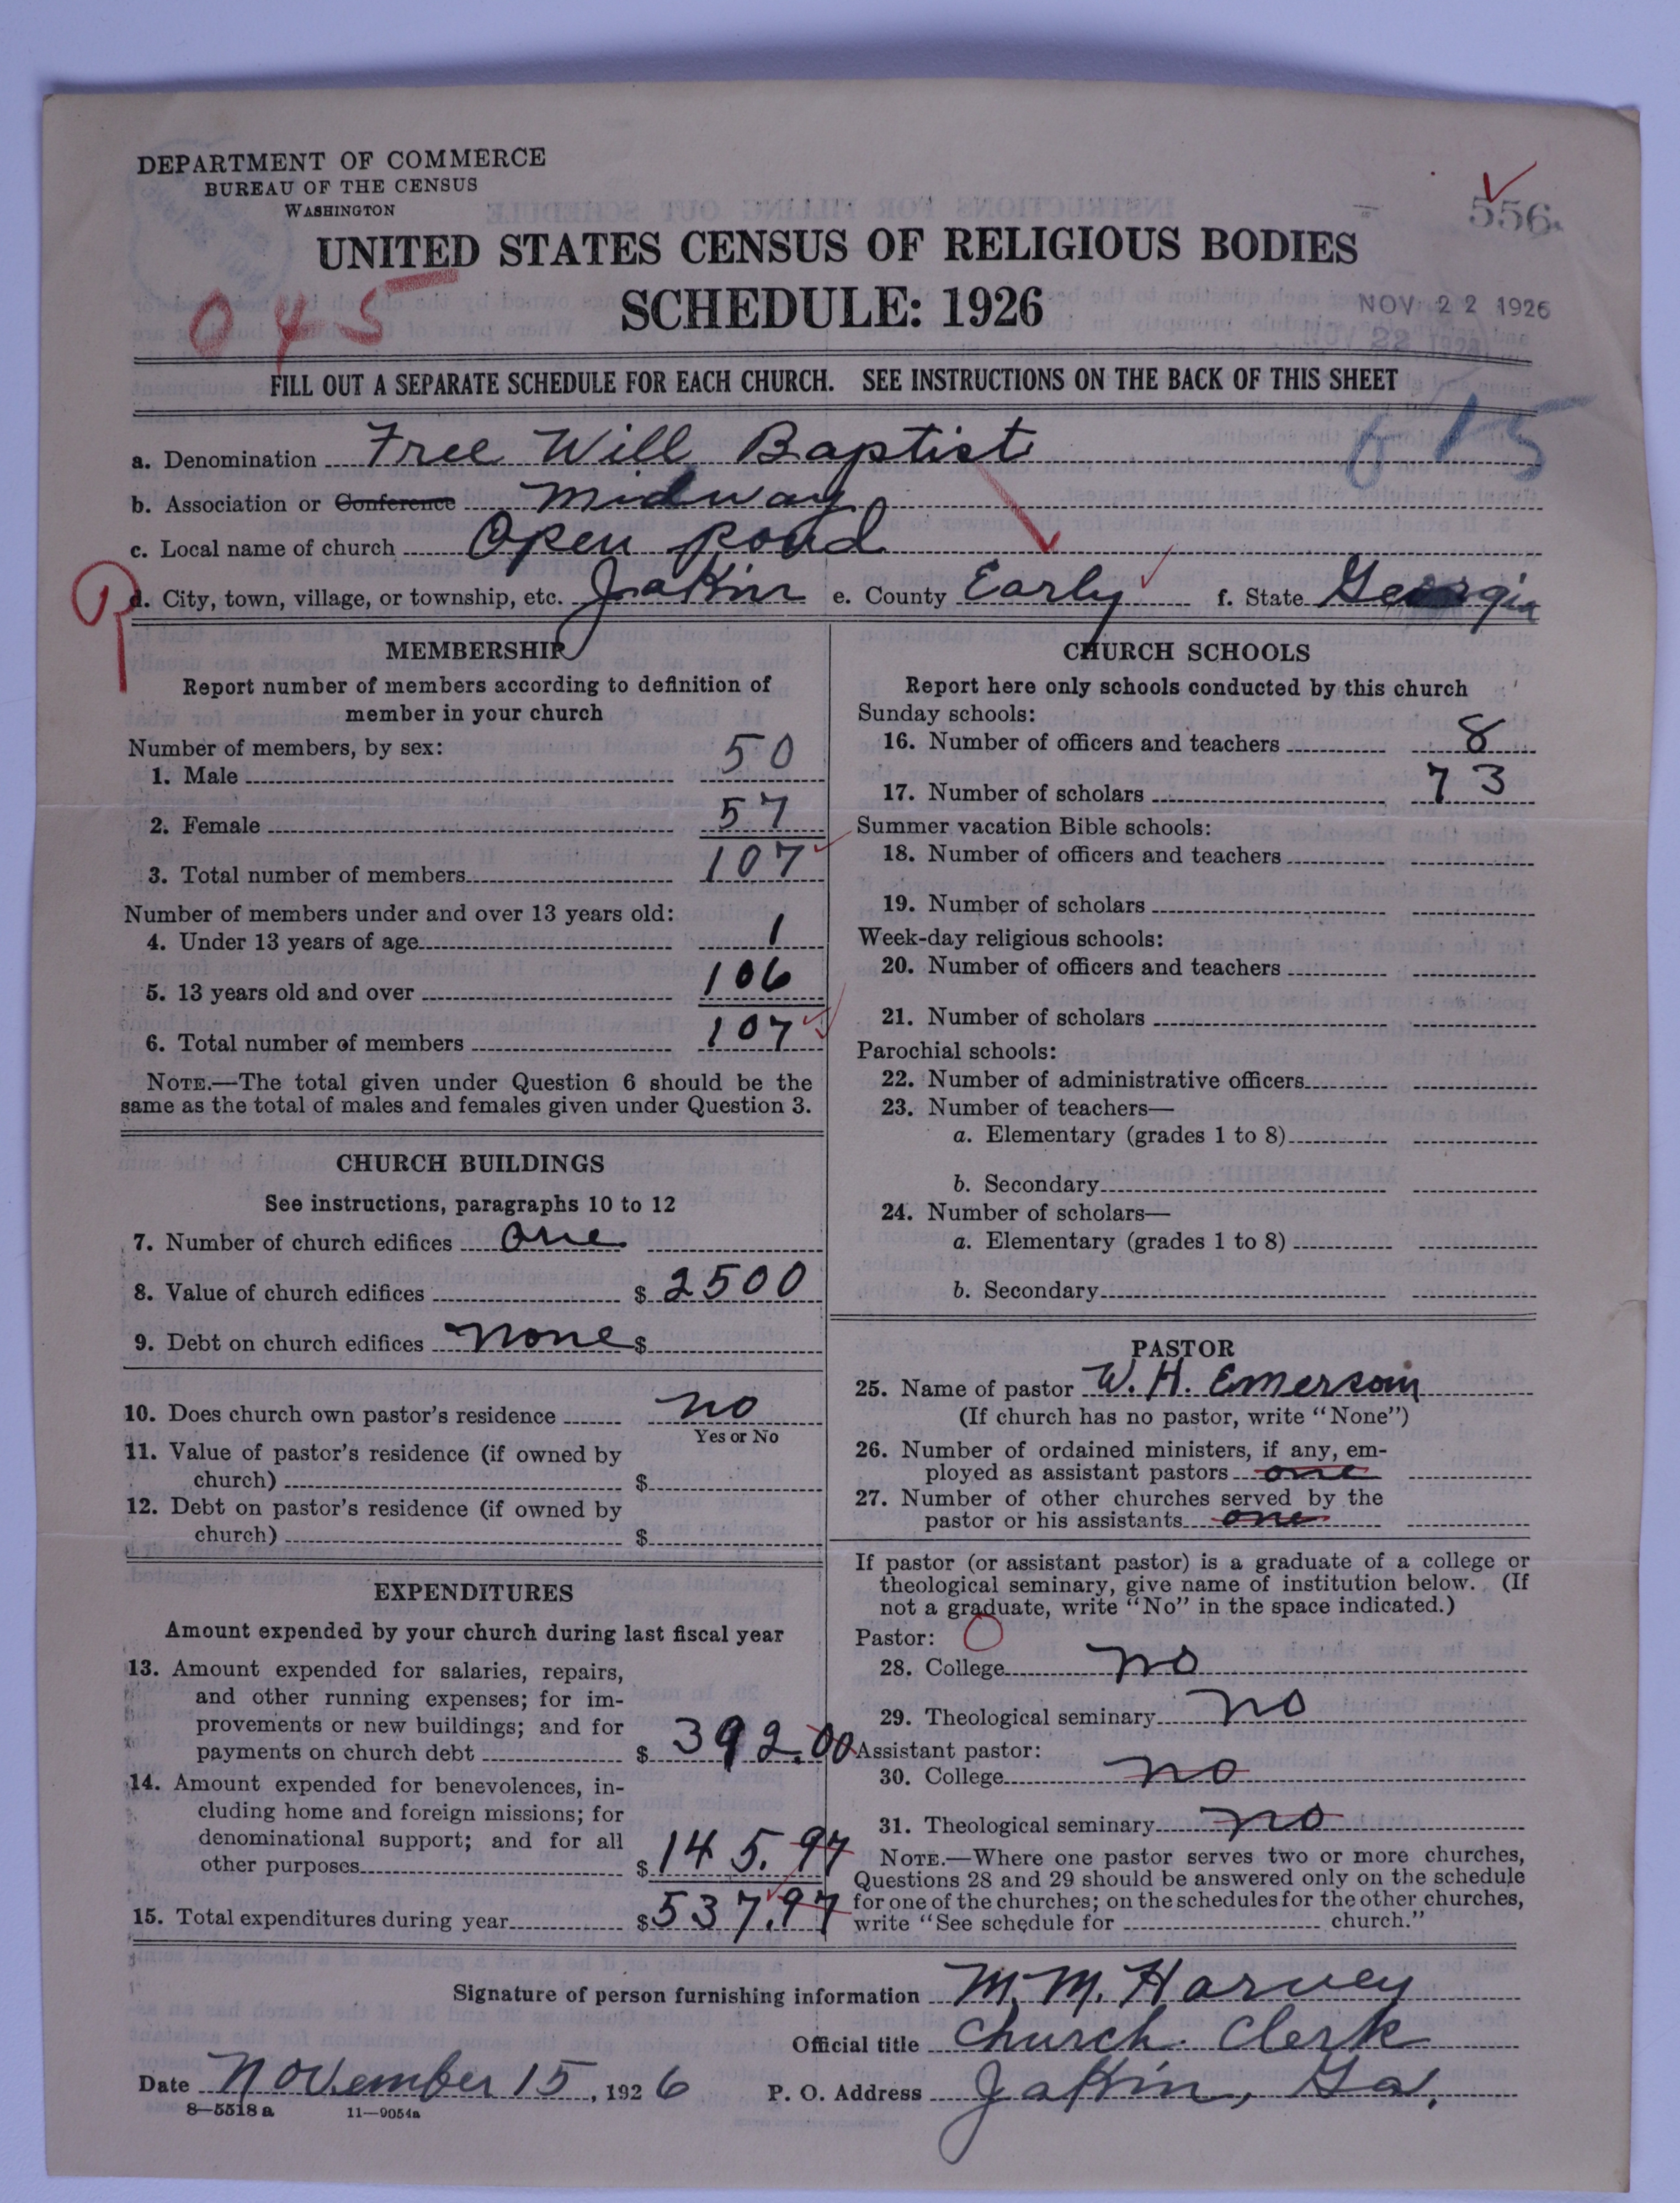 DEPARTMENT OF COMMERCE
BUREAU OF THE CENSUS
WASHINGTON
556
UNITED STATES CENSUS OF RELIGIOUS BODIES
SCHEDULE: 1926
045
NOV 22 1926
FILL OUT A SEPARATE SCHEDULE FOR EACH CHURCH. SEE INSTRUCTIONS ON THE BACK OF THIS SHEET
615
a. Denomination Free Will Baptist
b. Association or Conference Midway
c. Local name of church Open pond
d. City, town, village, or township, etc. Jakin e. County Early f. State Georgia
MEMBERSHIP
Report number of members according to definition of
member in your church
Number of members, by sex:
1. Male 50
2. Female 57
3. Total number of members 107
Number of members under and over 13 years old:
4. Under 13 years of age 1
5. 13 years old and over 106
6. Total number of members 107
NOTE.—The total given under Question 6 should be the
same as the total of males and females given under Question 3.
CHURCH BUILDINGS
See instructions, paragraphs 10 to 12
7. Number of church edifices one
8. Value of church edifices $ 2500
9. Debt on church edifices none $
10. Does church own pastor's residence no
Yes or No
11. Value of pastor's residence (if owned by
church) $
12. Debt on pastor's residence (if owned by
church) $
EXPENDITURES
Amount expended by your church during last fiscal year
13. Amount expended for salaries, repairs,
and other running expenses; for im-
provements or new buildings; and for
payments on church debt $ 392.00
14. Amount expended for benevolences, in-
cluding home and foreign missions; for
denominational support; and for all
other purposes $ 145.97
15. Total expenditures during year $ 537.97
CHURCH SCHOOLS
Report here only schools conducted by this church
Sunday schools:
16. Number of officers and teachers 8
17. Number of scholars 73
Summer vacation Bible schools:
18. Number of officers and teachers
19. Number of scholars
Week-day religious schools:
20. Number of officers and teachers
21. Number of scholars
Parochial schools:
22. Number of administrative officers
23. Number of teachers—
a. Elementary (grades 1 to 8)
b. Secondary
24. Number of scholars—
a. Elementary (grades 1 to 8)
b. Secondary
PASTOR
25. Name of pastor W. H. Emerson
(If church has no pastor, write "None")
26. Number of ordained ministers, if any, em-
ployed as assistant pastors one
27. Number of other churches served by the
pastor or his assistants one
If pastor (or assistant pastor) is a graduate of a college or
theological seminary, give name of institution below. (If
not a graduate, write "No" in the space indicated.)
Pastor:
28. College no
29. Theological seminary no
Assistant pastor:
30. College no
31. Theological seminary no
NOTE.—Where one pastor serves two or more churches,
Questions 28 and 29 should be answered only on the schedule
for one of the churches; on the schedules for the other churches,
write "See schedule for church."
Signature of person furnishing information M. M. Harvey
Official title Church Clerk
Date November 15, 1926 P. O. Address Jakin, Ga.
8—5518a 11—9054a